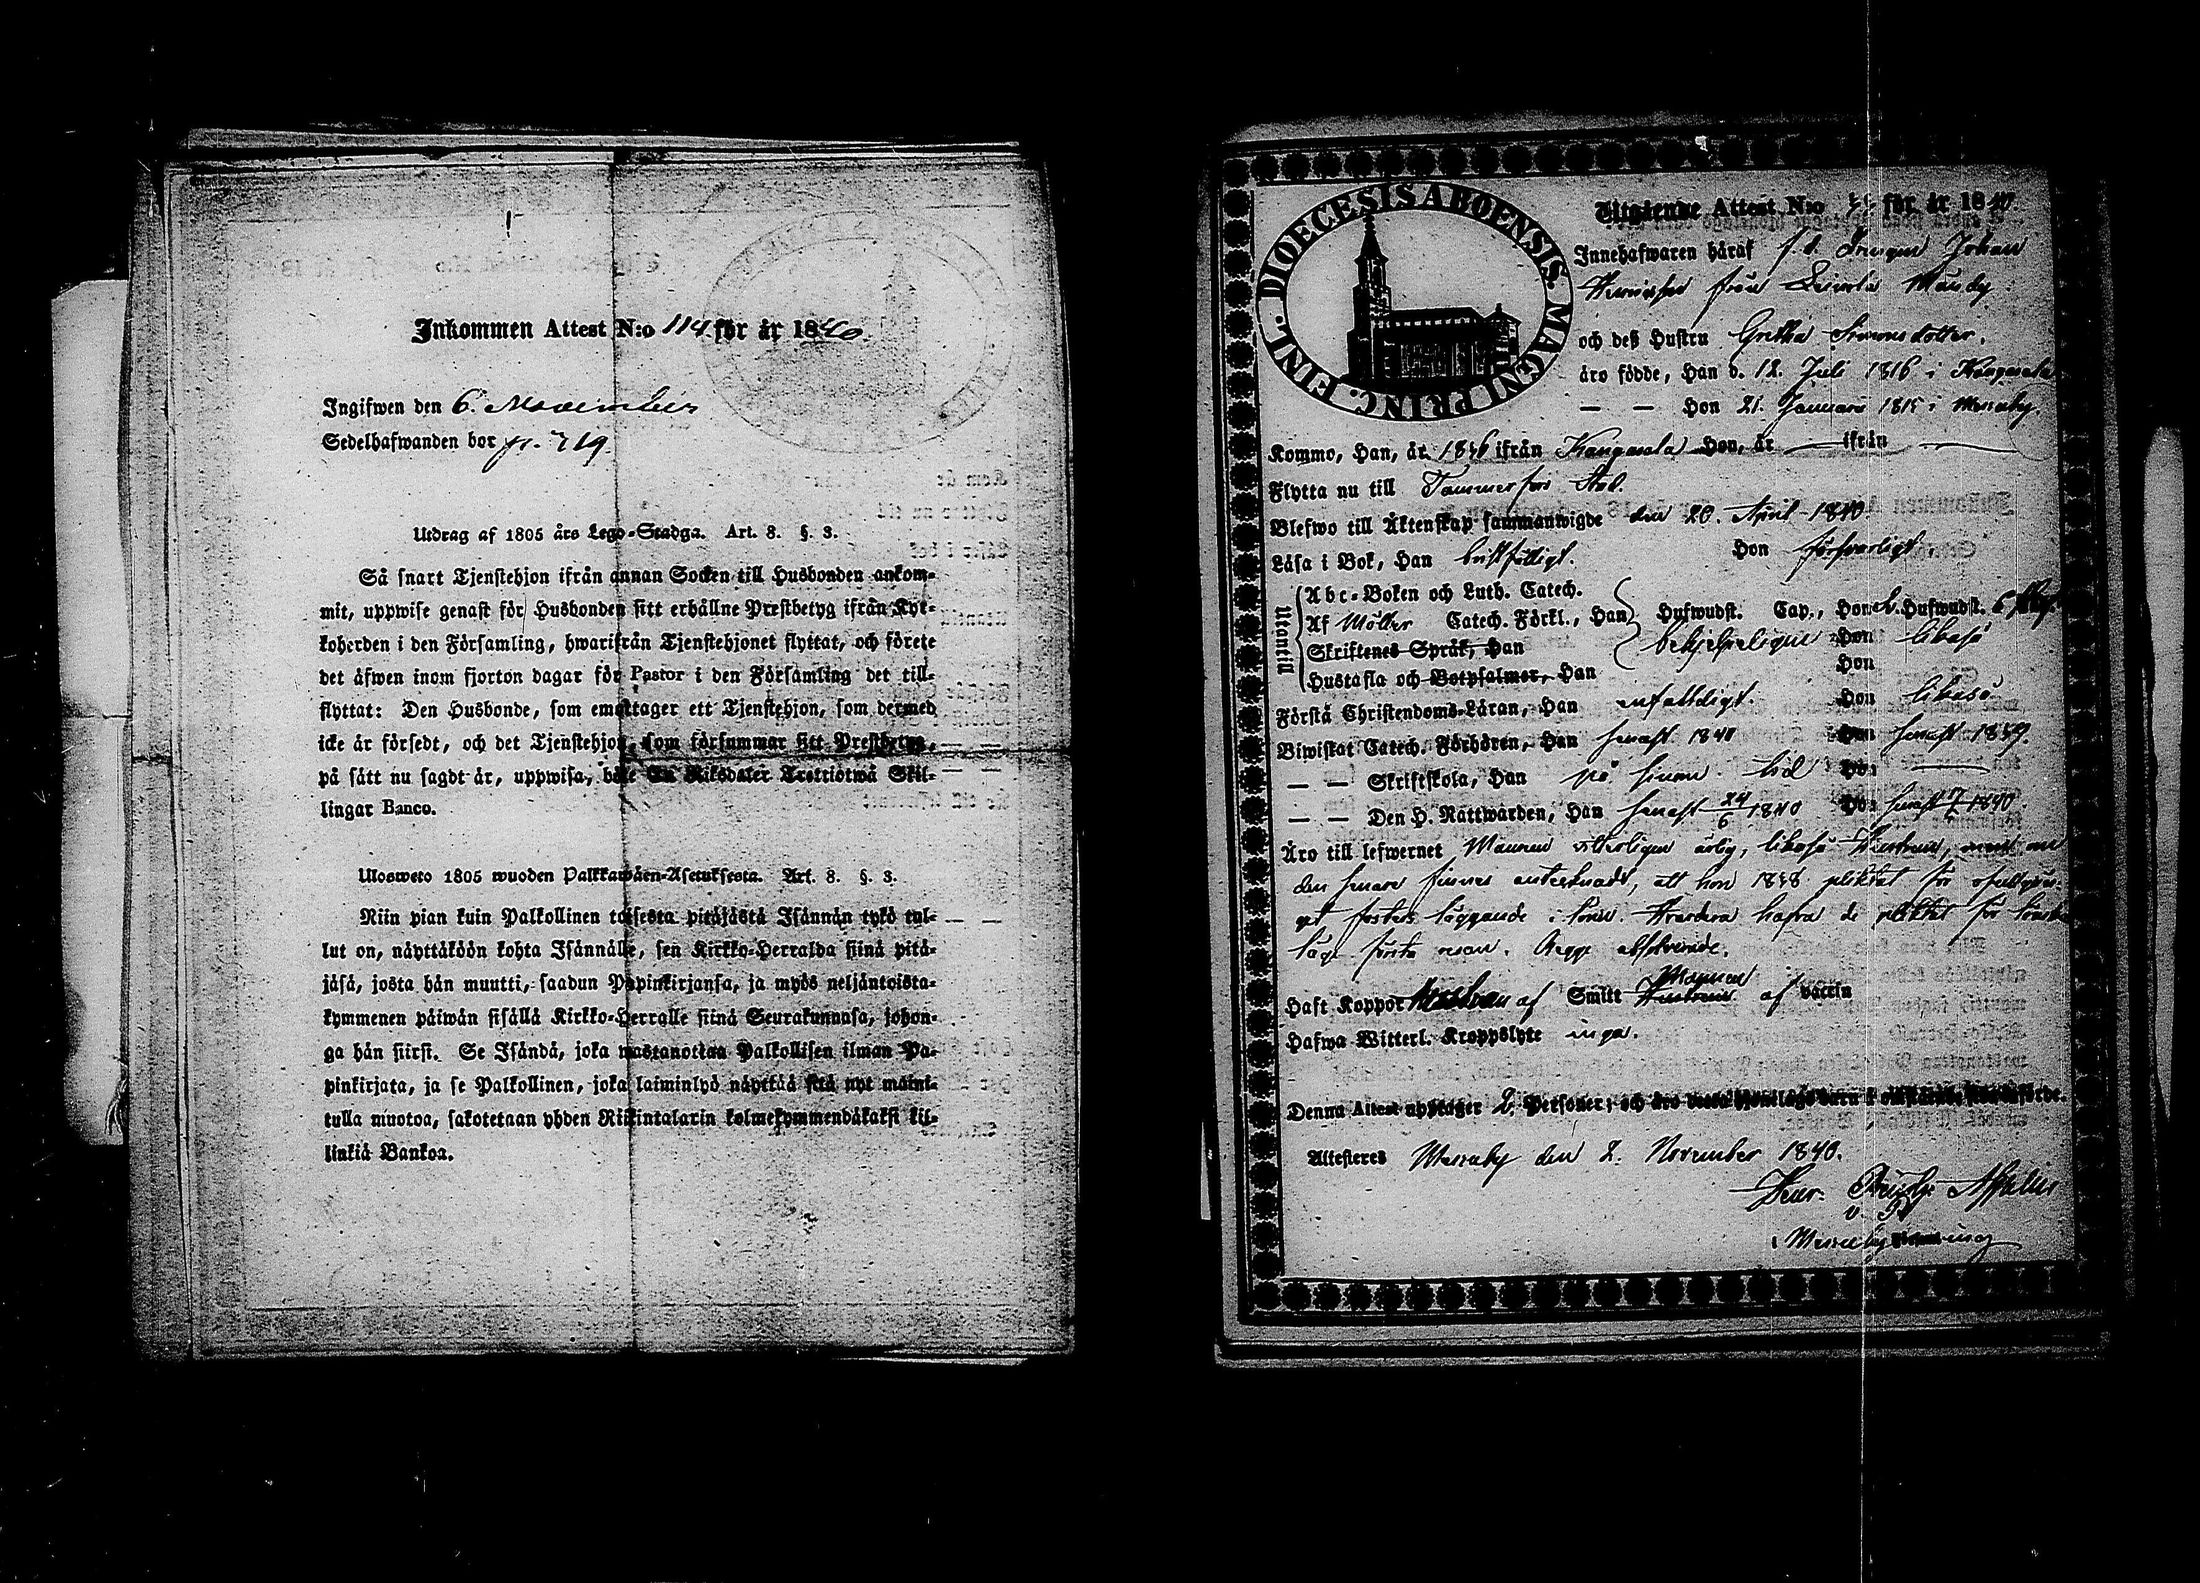 Inkommen Attest N:o 114 för år 1840.
Ingifwen den 6. November
Sedelhafwanden bor p. 719.
Utdrag af 1805 års Lego-Stadga. Art. 8. §. 3.
Så snart Tjenstehjon ifrån annan Socken till Husbonden ankom-
mit, uppwise genast för Husbonden sitt erhållne Prestbetyg ifrån Kyr-
koherden i den Församling, hwarifrån Tjenstehjonet flyttat, och förete
det äfwen inom fjorton dagar för Pastor i den Församling det till-
flyttat: Den Husbonde, som emottager ett Tjenstehjon, som dermed
icke är försedt, och det Tjenstehjon, som försummar sitt Prestbetyg,
på sätt nu sagdt är, uppwisa, böte En Riksdaler Trettiotwå Skil-
lingar Banco.
Ulosweto 1805 wuoden Palkkawäen-Asetuksesta. Art. 8. §. 3.
Niin pian kuin Palkollinen toisesta pitäjästä Isännän tykö tul-
lut on, näyttäköön kohta Isännälle, sen Kirkko-Herralda siinä pitä-
jäsä, josta hän muutti, saadun Papinkirjansa, ja myös neljäntoista-
kymmenen päiwän sisällä Kirkko-Herralle siinä Seurakunnasa, johon-
ga hän siirsi. Se Isändä, joka wastanottaa Palkollisen ilman Pa-
pinkirjata, ja se Palkollinen, joka laiminlyö näyttää sitä nyt maini-
tulla muotoa, sakotetaan yhden Riikintalarin kolmekymmendäkaksi kil-
linkiä Bankoa.
DIOECESIS ABOENSIS. MAGNI PRINC. FINL.
Utgående Attest N:o för år 1840
Innehafwaren häraf f. d. Drengen Johan
från
och deß Hustru Gretha Simonsdotter.
äro födde, Han d. 12. Juli 1816 i Kangasala
— — Hon 21. Januari 1815 i Messuby.
Kommo, Han, år 1836 ifrån Kangasala Hon, år — ifrån —
Flytta nu till Tammerfors Stad.
Blefwo till Äktenskap sammanwigde den 20. April 1840
Läsa i Bok, Han Hon försvarligt.
Utantill
Abc-Boken och Luth. Catech.
Af Möller Catech. Förkl., Han Hufwudst. Cap., Hon Hufwudst.
Skriftenes Språk, Han Hon likaså
Hustafla och Botpsalmer, Han Hon
Förstå Christendoms-Läran, Han enfaldigt. Hon likaså
Biwistat Catech. Förhören, Han senast 1840 Hon senast 1839.
— — Skriftskola, Han på sinom tid Hon —
— — Den H. Nattwarden, Han senast 24/6 1840 Hon senast 1840
Äro till lefwernet Mannen ärlig, likaså Hustrun, men om
den senare finnes antecknadt, att hon 1838 pliktat för
fosters läggande i lönn. hafva de pliktat för lönska
läge första resan. Begge absolverade.
Haft Koppor af Smitt Mannen Hustrun af vaccin
Hafwa Witterl. Kroppslyte inga.
Denna Attest upptager 2. Personer;
Attesteres Messuby den 2. November 1840.